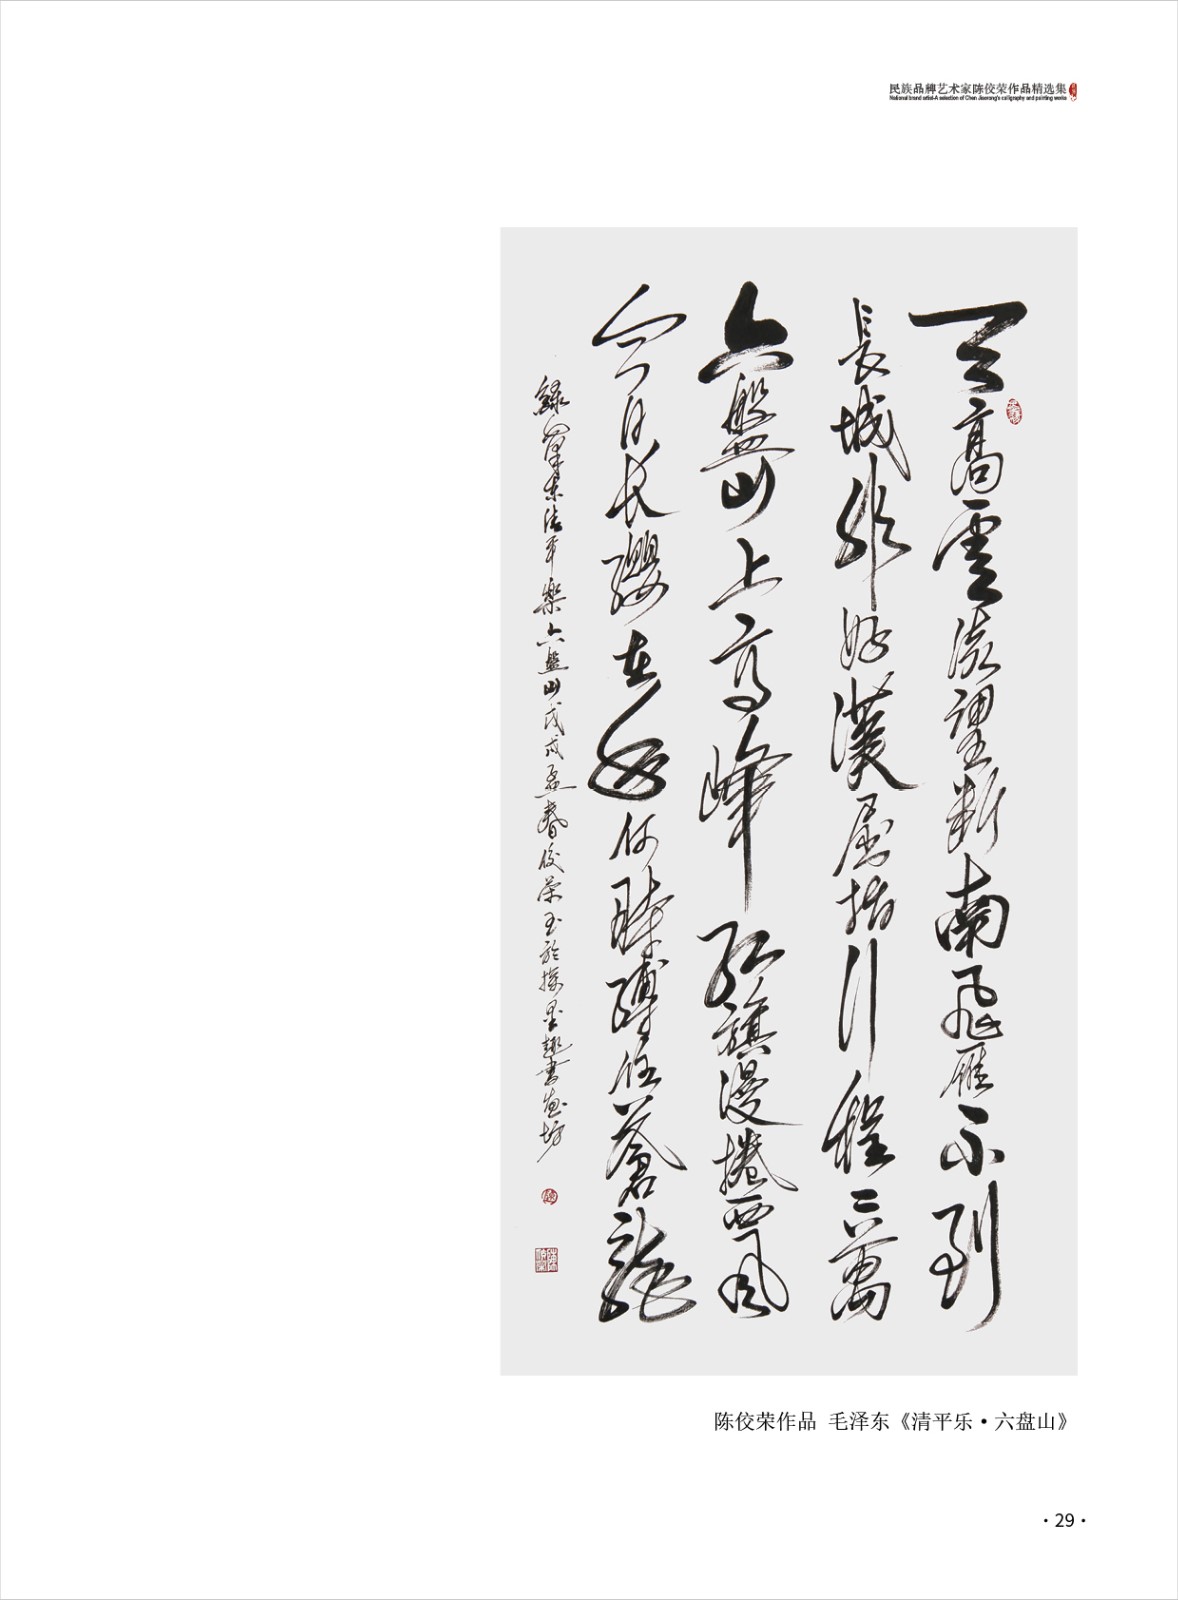 民族品牌艺术家陈佼荣作品精选集
National brand artist-A selection of Chen Jiaorong's calligraphy and painting works
天高雲淡望斷南飛雁不到
長城非好漢屈指行程二萬
六盤山上高峰紅旗漫捲西風
今日長纓在手何時縛住蒼龍
錄澤東清平樂六盤山戊戌孟春佼荣書於探墨趣書画坊
陈佼荣作品 毛泽东《清平乐·六盘山》
·29·